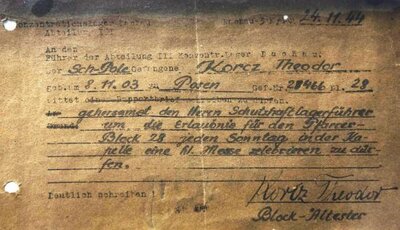 Konzentrationslager Dachau Dachau 3 K, den 24.11.44
Abteilung III
An den
Führer der Abteilung III Konzentr.Lager D a c h a u.
Der Sch.-Pole Gefangene Korcz Theodor
geb.am 8.11.03 in Posen Gef.Nr 28466 Bl. 28
bittet
gehorsamst den Herrn Schutzhaftlagerführer
um die Erlaubnis für den Pfarrer-
Block 28 jeden Sonntag in der Ka-
pelle eine hl. Messe zelebrieren zu dür-
fen.
Deutlich schreiben! Korcz Theodor
Block-Ältester